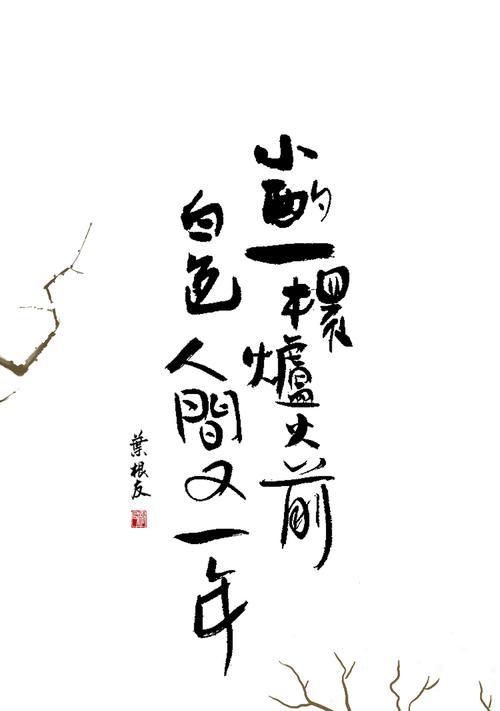 小酌一檈爐火前
白色人間又一年
葉根友